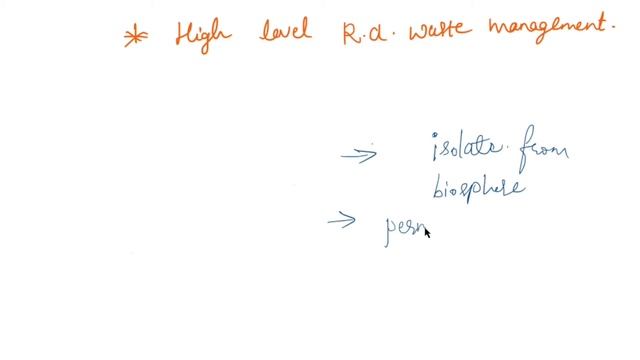 * High level R.a. waste management.
→ isolate from
biosphere
→ perm